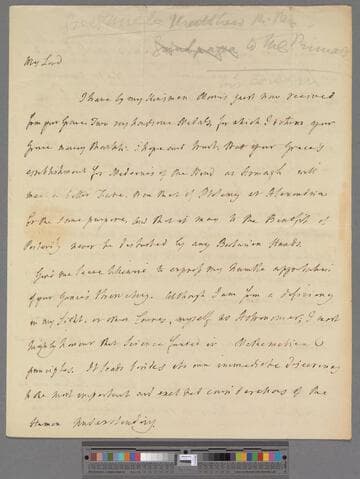 to the Primate
My Lord
I have by my kinsman Morris just now received
from your Grace Two very handsome Medals, for which I return your
Grace many thanks. I hope and trust that your Grace's
establishment for Medicines of the Mind at Armagh will
meet a better Fate, than that of Ptolemy at Alexandria
for the same purpose, and that it may to the Benefit of
Posterity never be disturbed by any Barbarian Hands.
Give me leave likewise to express my humble approbation
of your Grace's Observatory. Although I am from a deficiency
in my sight, or other Causes, myself no Astronomer, I most
highly honour that Science founded in Mathematical
principles. It leads besides its own immediate Discoveries
to the most important and exalted considerations of the
Human Understanding